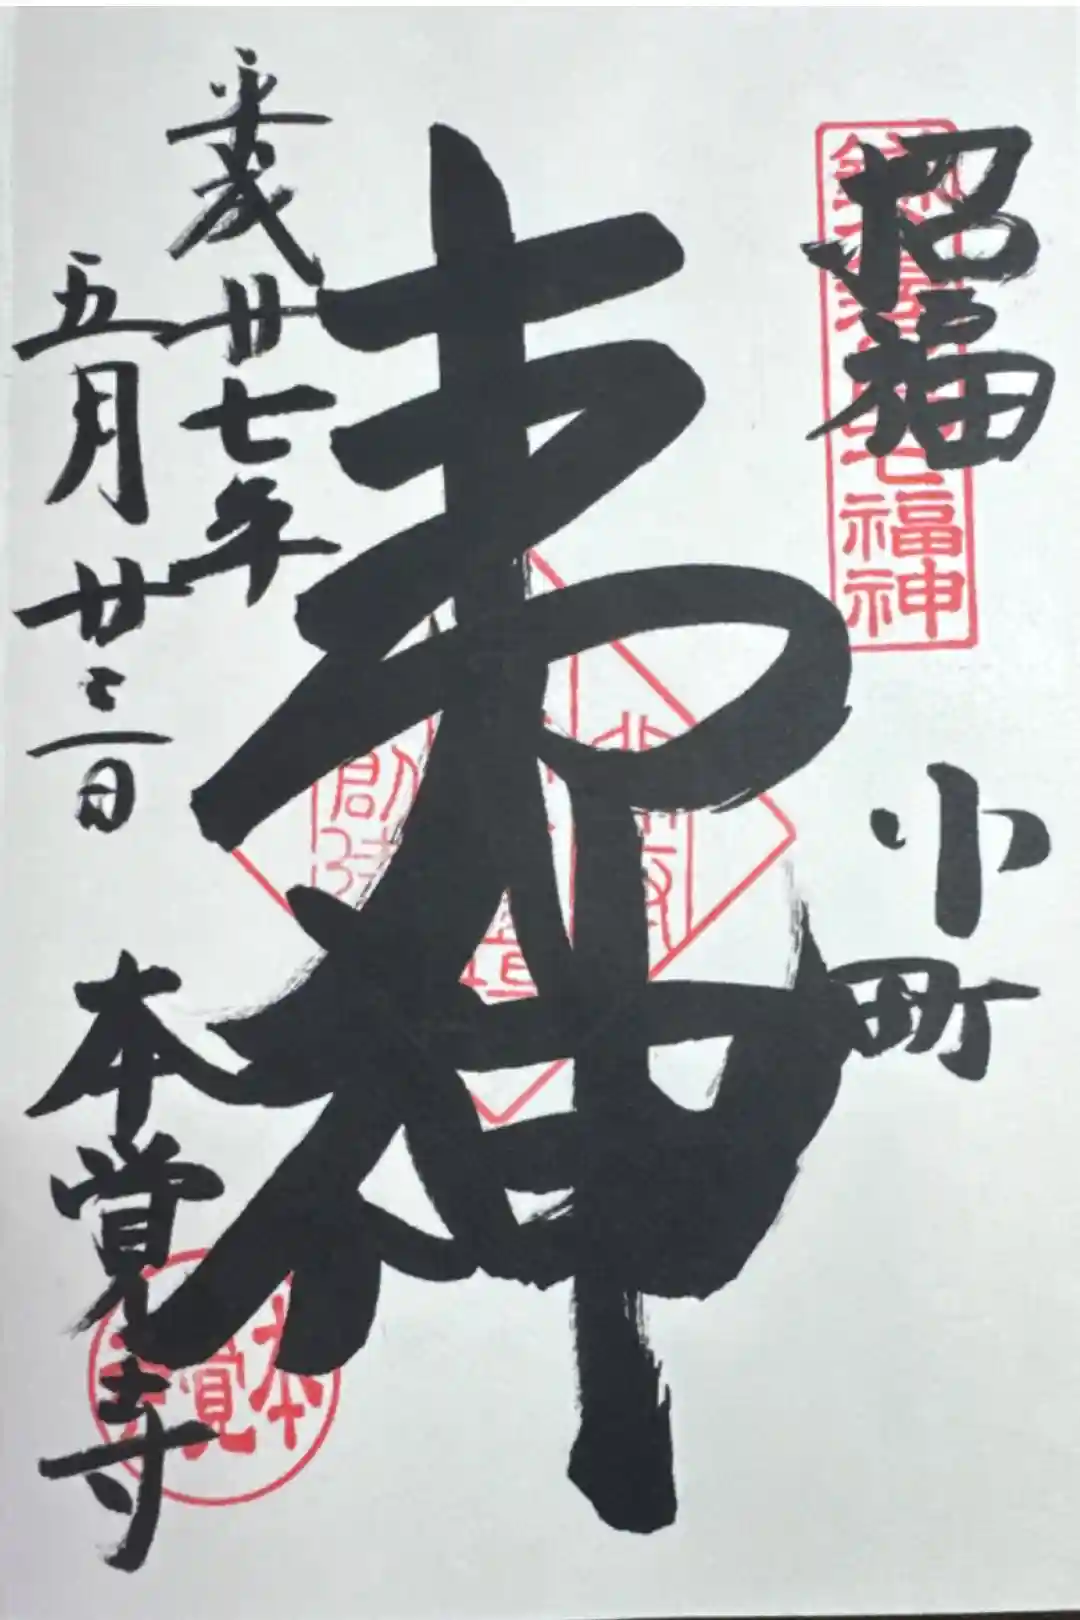 招福
小町
七福神
夷神
平成廿七年
五月廿三日
本覚寺
本覚寺